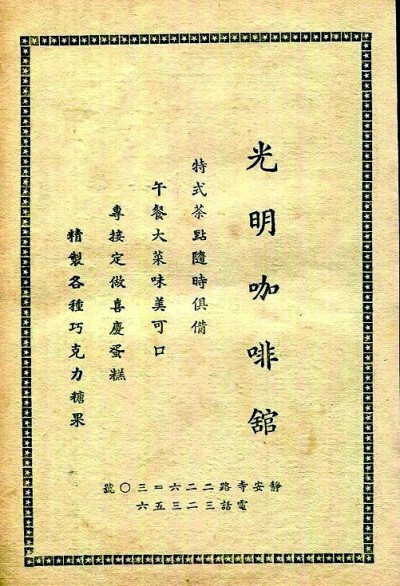 光明咖啡舘
特式茶點隨時俱備
午餐大菜味美可口
專接定做喜慶蛋糕
精製各種巧克力糖果
靜安寺路二二六=三〇號
電話三二三五六